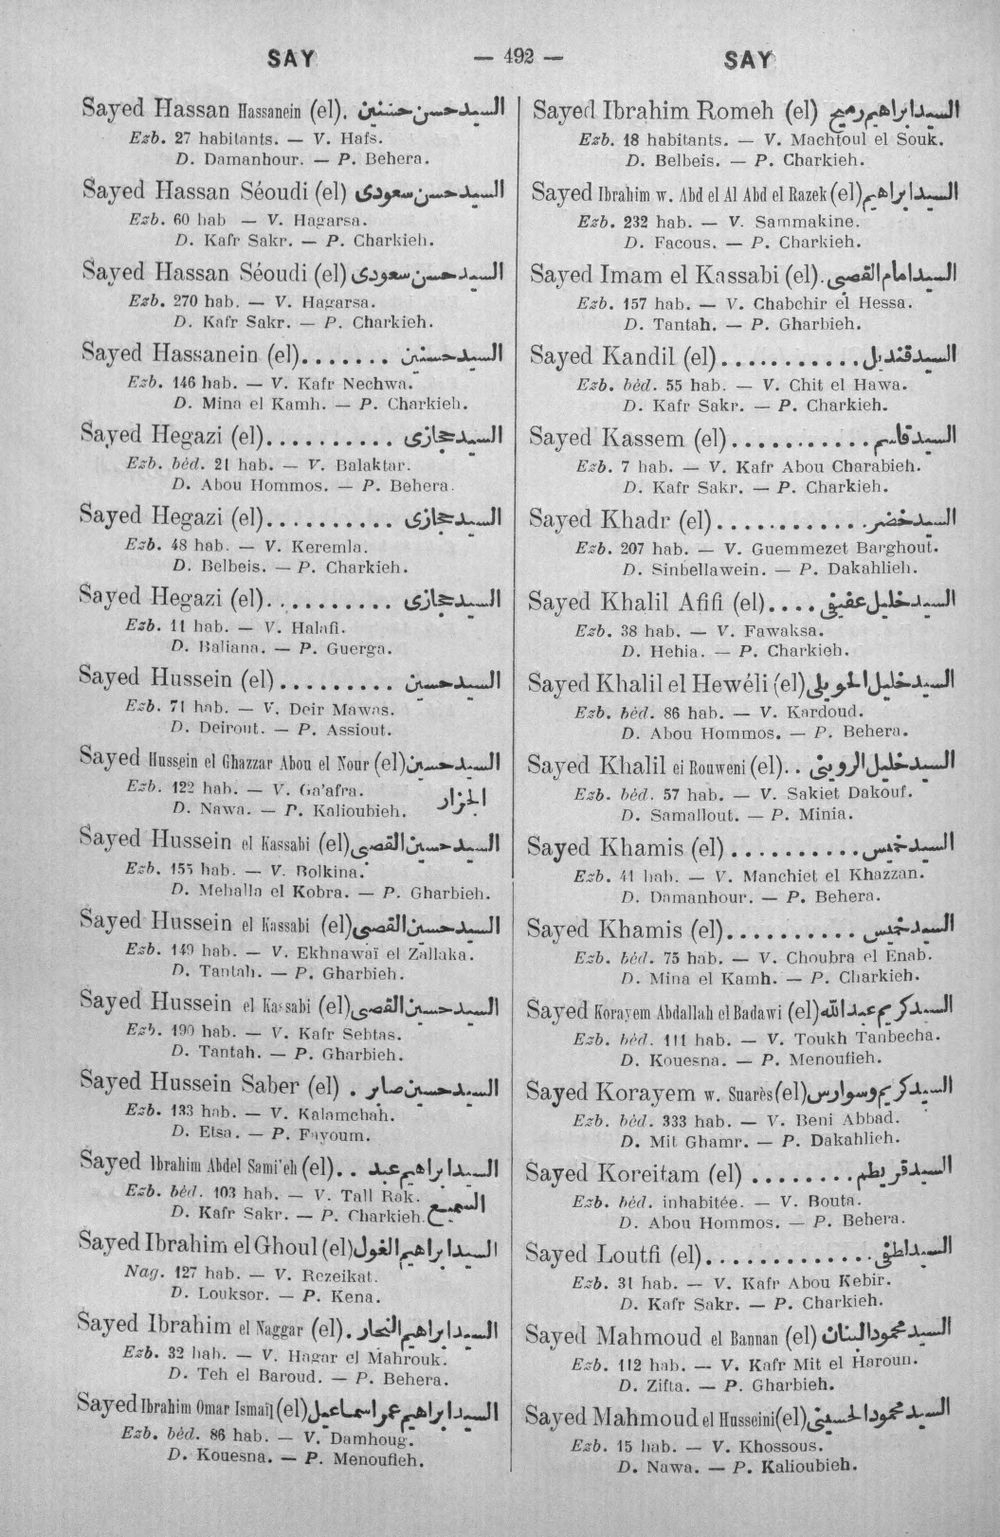 SAY — 492 — SAY
Sayed Hassan Hassanein (el). السيدحسن حسنين
Ezb. 27 habitants. — V. Hafs.
D. Damanhour. — P. Behera.
Sayed Hassan Séoudi (el) السيدحسن سعودى
Ezb. 60 hab — V. Hagarsa.
D. Kafr Sakr. — P. Charkieh.
Sayed Hassan Séoudi (el) السيدحسن سعودى
Ezb. 270 hab. — V. Hagarsa.
D. Kafr Sakr. — P. Charkieh.
Sayed Hassanein (el)....... السيدحسنين
Ezb. 146 hab. — V. Kafr Nechwa.
D. Mina el Kamh. — P. Charkieh.
Sayed Hegazi (el).......... السيدحجازى
Ezb. béd. 21 hab. — V. Balaktar.
D. Abou Hommos. — P. Behera.
Sayed Hegazi (el).......... السيدحجازى
Ezb. 48 hab. — V. Keremla.
D. Belbeis. — P. Charkieh.
Sayed Hegazi (el).......... السيدحجازى
Ezb. 11 hab. — V. Halafi.
D. Baliana. — P. Guerga.
Sayed Hussein (el)......... السيدحسين
Ezb. 71 hab. — V. Deir Mawas.
D. Deirout. — P. Assiout.
Sayed Hussein el Ghazzar Abou el Nour (el) السيدحسين
Ezb. 122 hab. — V. Ga'afra. الجزار
D. Nawa. — P. Kalioubieh.
Sayed Hussein el Kassabi (el) السيدحسين القصبى
Ezb. 155 hab. — V. Bolkina.
D. Mehalla el Kobra. — P. Gharbieh.
Sayed Hussein el Kassabi (el) السيدحسين القصبى
Ezb. 149 hab. — V. Ekhnawaï el Zallaka.
D. Tantah. — P. Gharbieh.
Sayed Hussein el Kassabi (el) السيدحسين القصبى
Ezb. 190 hab. — V. Kafr Sebtas.
D. Tantah. — P. Gharbieh.
Sayed Hussein Saber (el) . السيدحسين صابر
Ezb. 133 hab. — V. Kalamchah.
D. Etsa. — P. Fayoum.
Sayed Ibrahim Abdel Sami'eh (el).. السيدابراهيم عبد
Ezb. béd. 103 hab. — V. Tall Rak. السميع
D. Kafr Sakr. — P. Charkieh.
Sayed Ibrahim el Ghoul (el) السيدابراهيم الغول
Nag. 127 hab. — V. Rezeikat.
D. Louksor. — P. Kena.
Sayed Ibrahim el Naggar (el). السيدابراهيم النجار
Ezb. 32 hab. — V. Hagar el Mahrouk.
D. Teh el Baroud. — P. Behera.
Sayed Ibrahim Omar Ismaïl (el) السيدابراهيم عمر اسماعيل
Ezb. béd. 86 hab. — V. Damhoug.
D. Kouesna. — P. Menoufieh.
Sayed Ibrahim Romeh (el) السيدابراهيم رميح
Ezb. 18 habitants. — V. Machtoul el Souk.
D. Belbeis. — P. Charkieh.
Sayed Ibrahim w. Abd el Al Abd el Razek (el) السيدابراهيم
Ezb. 232 hab. — V. Sammakine.
D. Facous. — P. Charkieh.
Sayed Imam el Kassabi (el). السيدامام القصبى
Ezb. 157 hab. — V. Chabchir el Hessa.
D. Tantah. — P. Gharbieh.
Sayed Kandil (el)........... السيدقنديل
Ezb. béd. 55 hab. — V. Chit el Hawa.
D. Kafr Sakr. — P. Charkieh.
Sayed Kassem (el)........... السيدقاسم
Ezb. 7 hab. — V. Kafr Abou Charabieh.
D. Kafr Sakr. — P. Charkieh.
Sayed Khadr (el)............ السيدخضر
Ezb. 207 hab. — V. Guemmezet Barghout.
D. Sinbellawein. — P. Dakahlieh.
Sayed Khalil Afifi (el).... السيدخليل عفيفى
Ezb. 38 hab. — V. Fawaksa.
D. Hehia. — P. Charkieh.
Sayed Khalil el Hewéli (el) السيدخليل الحويلى
Ezb. béd. 86 hab. — V. Kardoud.
D. Abou Hommos. — P. Behera.
Sayed Khalil el Rouweni (el).. السيدخليل الروينى
Ezb. béd. 57 hab. — V. Sakiet Dakouf.
D. Samallout. — P. Minia.
Sayed Khamis (el)........... السيدخميس
Ezb. 41 hab. — V. Manchiet el Khazzan.
D. Damanhour. — P. Behera.
Sayed Khamis (el).......... السيدخميس
Ezb. béd. 75 hab. — V. Choubra el Enab.
D. Mina el Kamh. — P. Charkieh.
Sayed Korayem Abdallah el Badawi (el) السيدكريم عبدالله
Ezb. béd. 111 hab. — V. Toukh Tanbecha.
D. Kouesna. — P. Menoufieh.
Sayed Korayem w. Suarès (el) السيدكريم وسوارس
Ezb. béd. 333 hab. — V. Beni Abbad.
D. Mit Ghamr. — P. Dakahlieh.
Sayed Koreitam (el) ........ السيدقريطم
Ezb. béd. inhabitée. — V. Bouta.
D. Abou Hommos. — P. Behera.
Sayed Loutfi (el)............. السيدلطفى
Ezb. 31 hab. — V. Kafr Abou Kebir.
D. Kafr Sakr. — P. Charkieh.
Sayed Mahmoud el Bannan (el) السيدمحمودالبنان
Ezb. 112 hab. — V. Kafr Mit el Haroun.
D. Zifta. — P. Gharbieh.
Sayed Mahmoud el Husseini (el) السيدمحمودالحسينى
Ezb. 15 hab. — V. Khossous.
D. Nawa. — P. Kalioubieh.